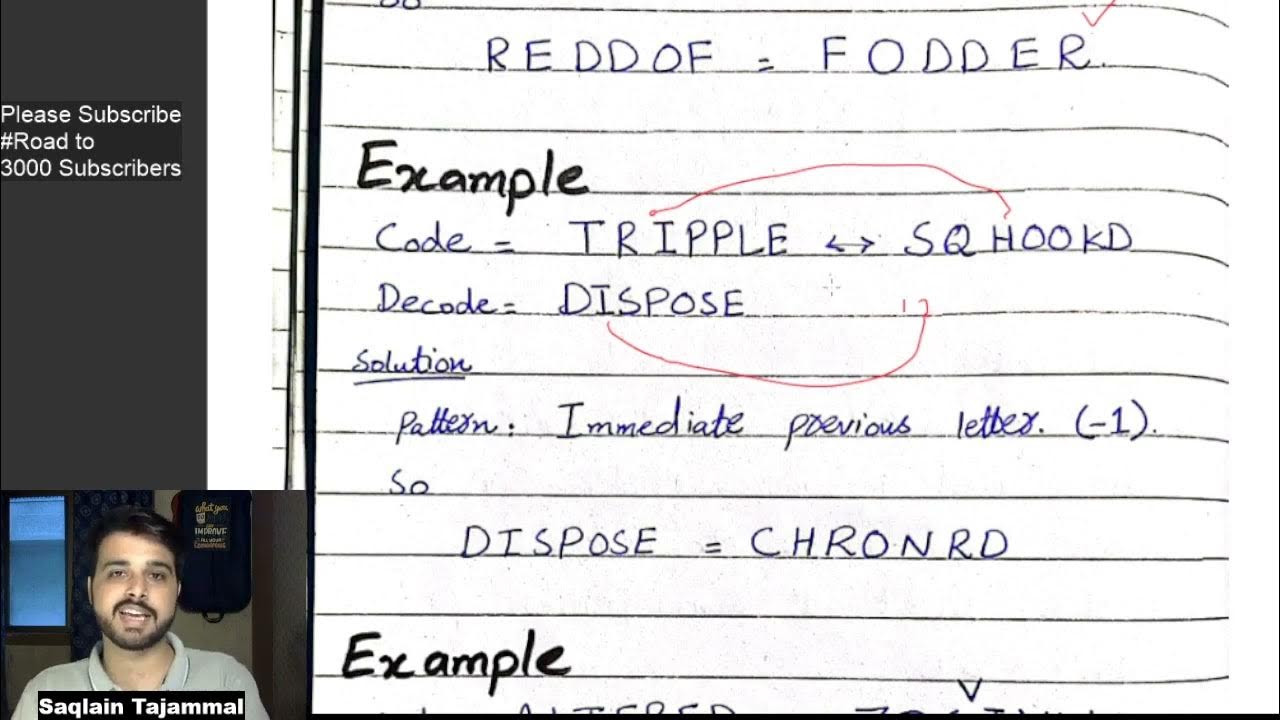 So
REDDOF = FODDER.
Please Subscribe
#Road to
3000 Subscribers
Example
Code = TRIPPLE ↔ SQHOOKD
Decode = DISPOSE
Solution
Pattern: Immediate previous letter. (-1).
So
DISPOSE = CHRONRD
what you
IMPROVE
Saqlain Tajammal
Example
ALTERED